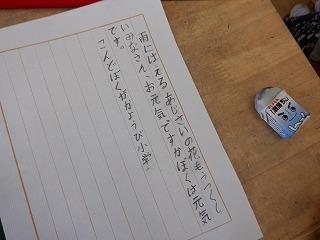 雨にはえるあじさいの花もうつくし
いみなさん、お元気ですかぼくは元気
です。
こんどぼくががようび小学